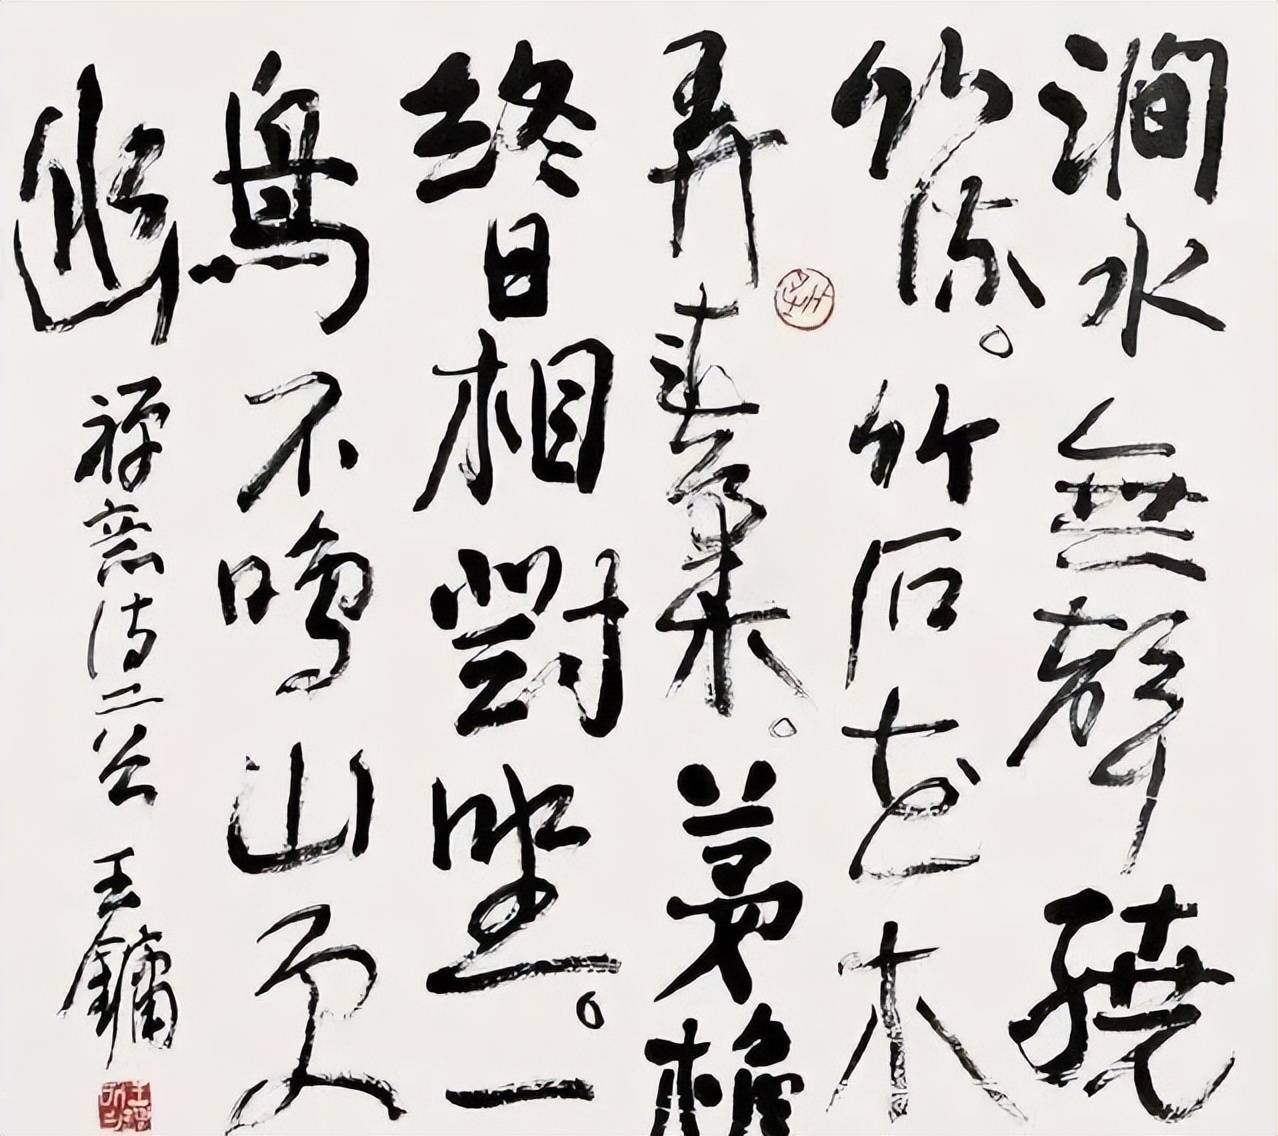 澗水無聲繞
竹流。竹石花木
弄春柔。茅檐
終日相對坐。一
鳥不鳴山更
幽
禪意詩二首 王鏞